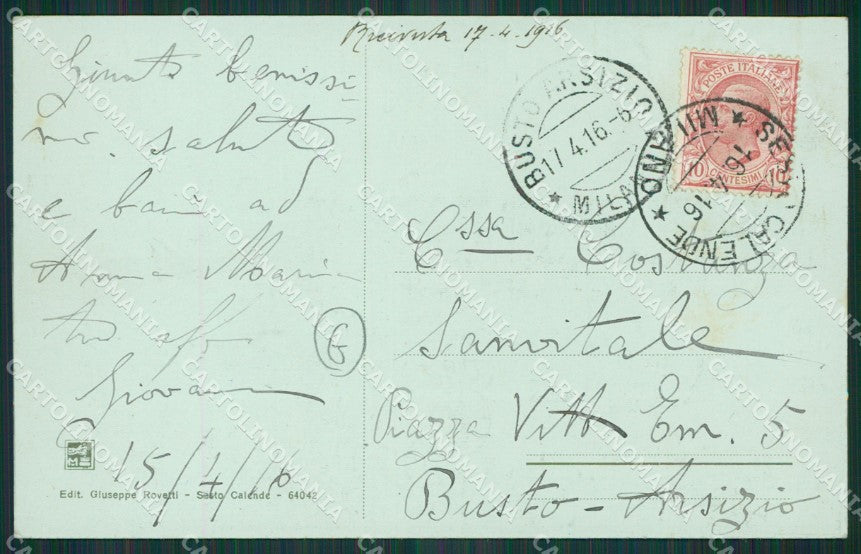 Ricevuta 17-4-1916
Giunto benissi
mo. saluti
e baci ad
Anna Maria
tuo aff
Giovanni
15/4/16
G
Edit. Giuseppe Rovetti - Sesto Calende - 64042
BUSTO ARSIZIO
17.4.16.-6
★ MILANO
POSTE ITALIANE
10 CENTESIMI
SESTO CALENDE ★ MILANO ★
16.4.16
C.ssa Costanza
Sanvitale
Piazza Vitt Em. 5
Busto-Arsizio
CARTOLINOMANIA